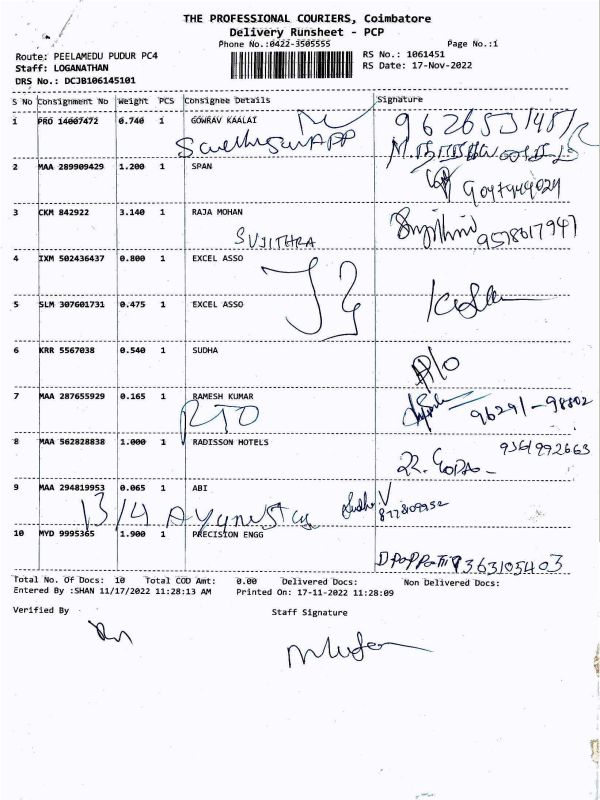 THE PROFESSIONAL COURIERS, Coimbatore
Delivery Runsheet - PCP
Phone No.:0422-3505555
Page No.:1
Route: PEELAMEDU PUDUR PC4
Staff: LOGANATHAN
DRS No.: DCJB106145101
RS No.: 1061451
RS Date: 17-Nov-2022
S No Consignment No Weight PCS Consignee Details Signature
1 PRO 14007472 0.740 1 GOWRAV KAALAI
2 MAA 289909429 1.200 1 SPAN
3 CKM 842922 3.140 1 RAJA MOHAN
SUJITHRA 9578617947
4 IXM 502436437 0.800 1 EXCEL ASSO
5 SLM 307601731 0.475 1 EXCEL ASSO
6 KRR 5567038 0.540 1 SUDHA
7 MAA 287655929 0.165 1 RAMESH KUMAR
RTO 96291-98802
8 MAA 562828838 1.000 1 RADISSON HOTELS
9361992663
9 MAA 294819953 0.065 1 ABI
10 MYD 9995365 1.900 1 PRECISION ENGG
9363105403
Total No. Of Docs: 10 Total COD Amt: 0.00 Delivered Docs: Non Delivered Docs:
Entered By :SHAN 11/17/2022 11:28:13 AM Printed On: 17-11-2022 11:28:09
Verified By Staff Signature